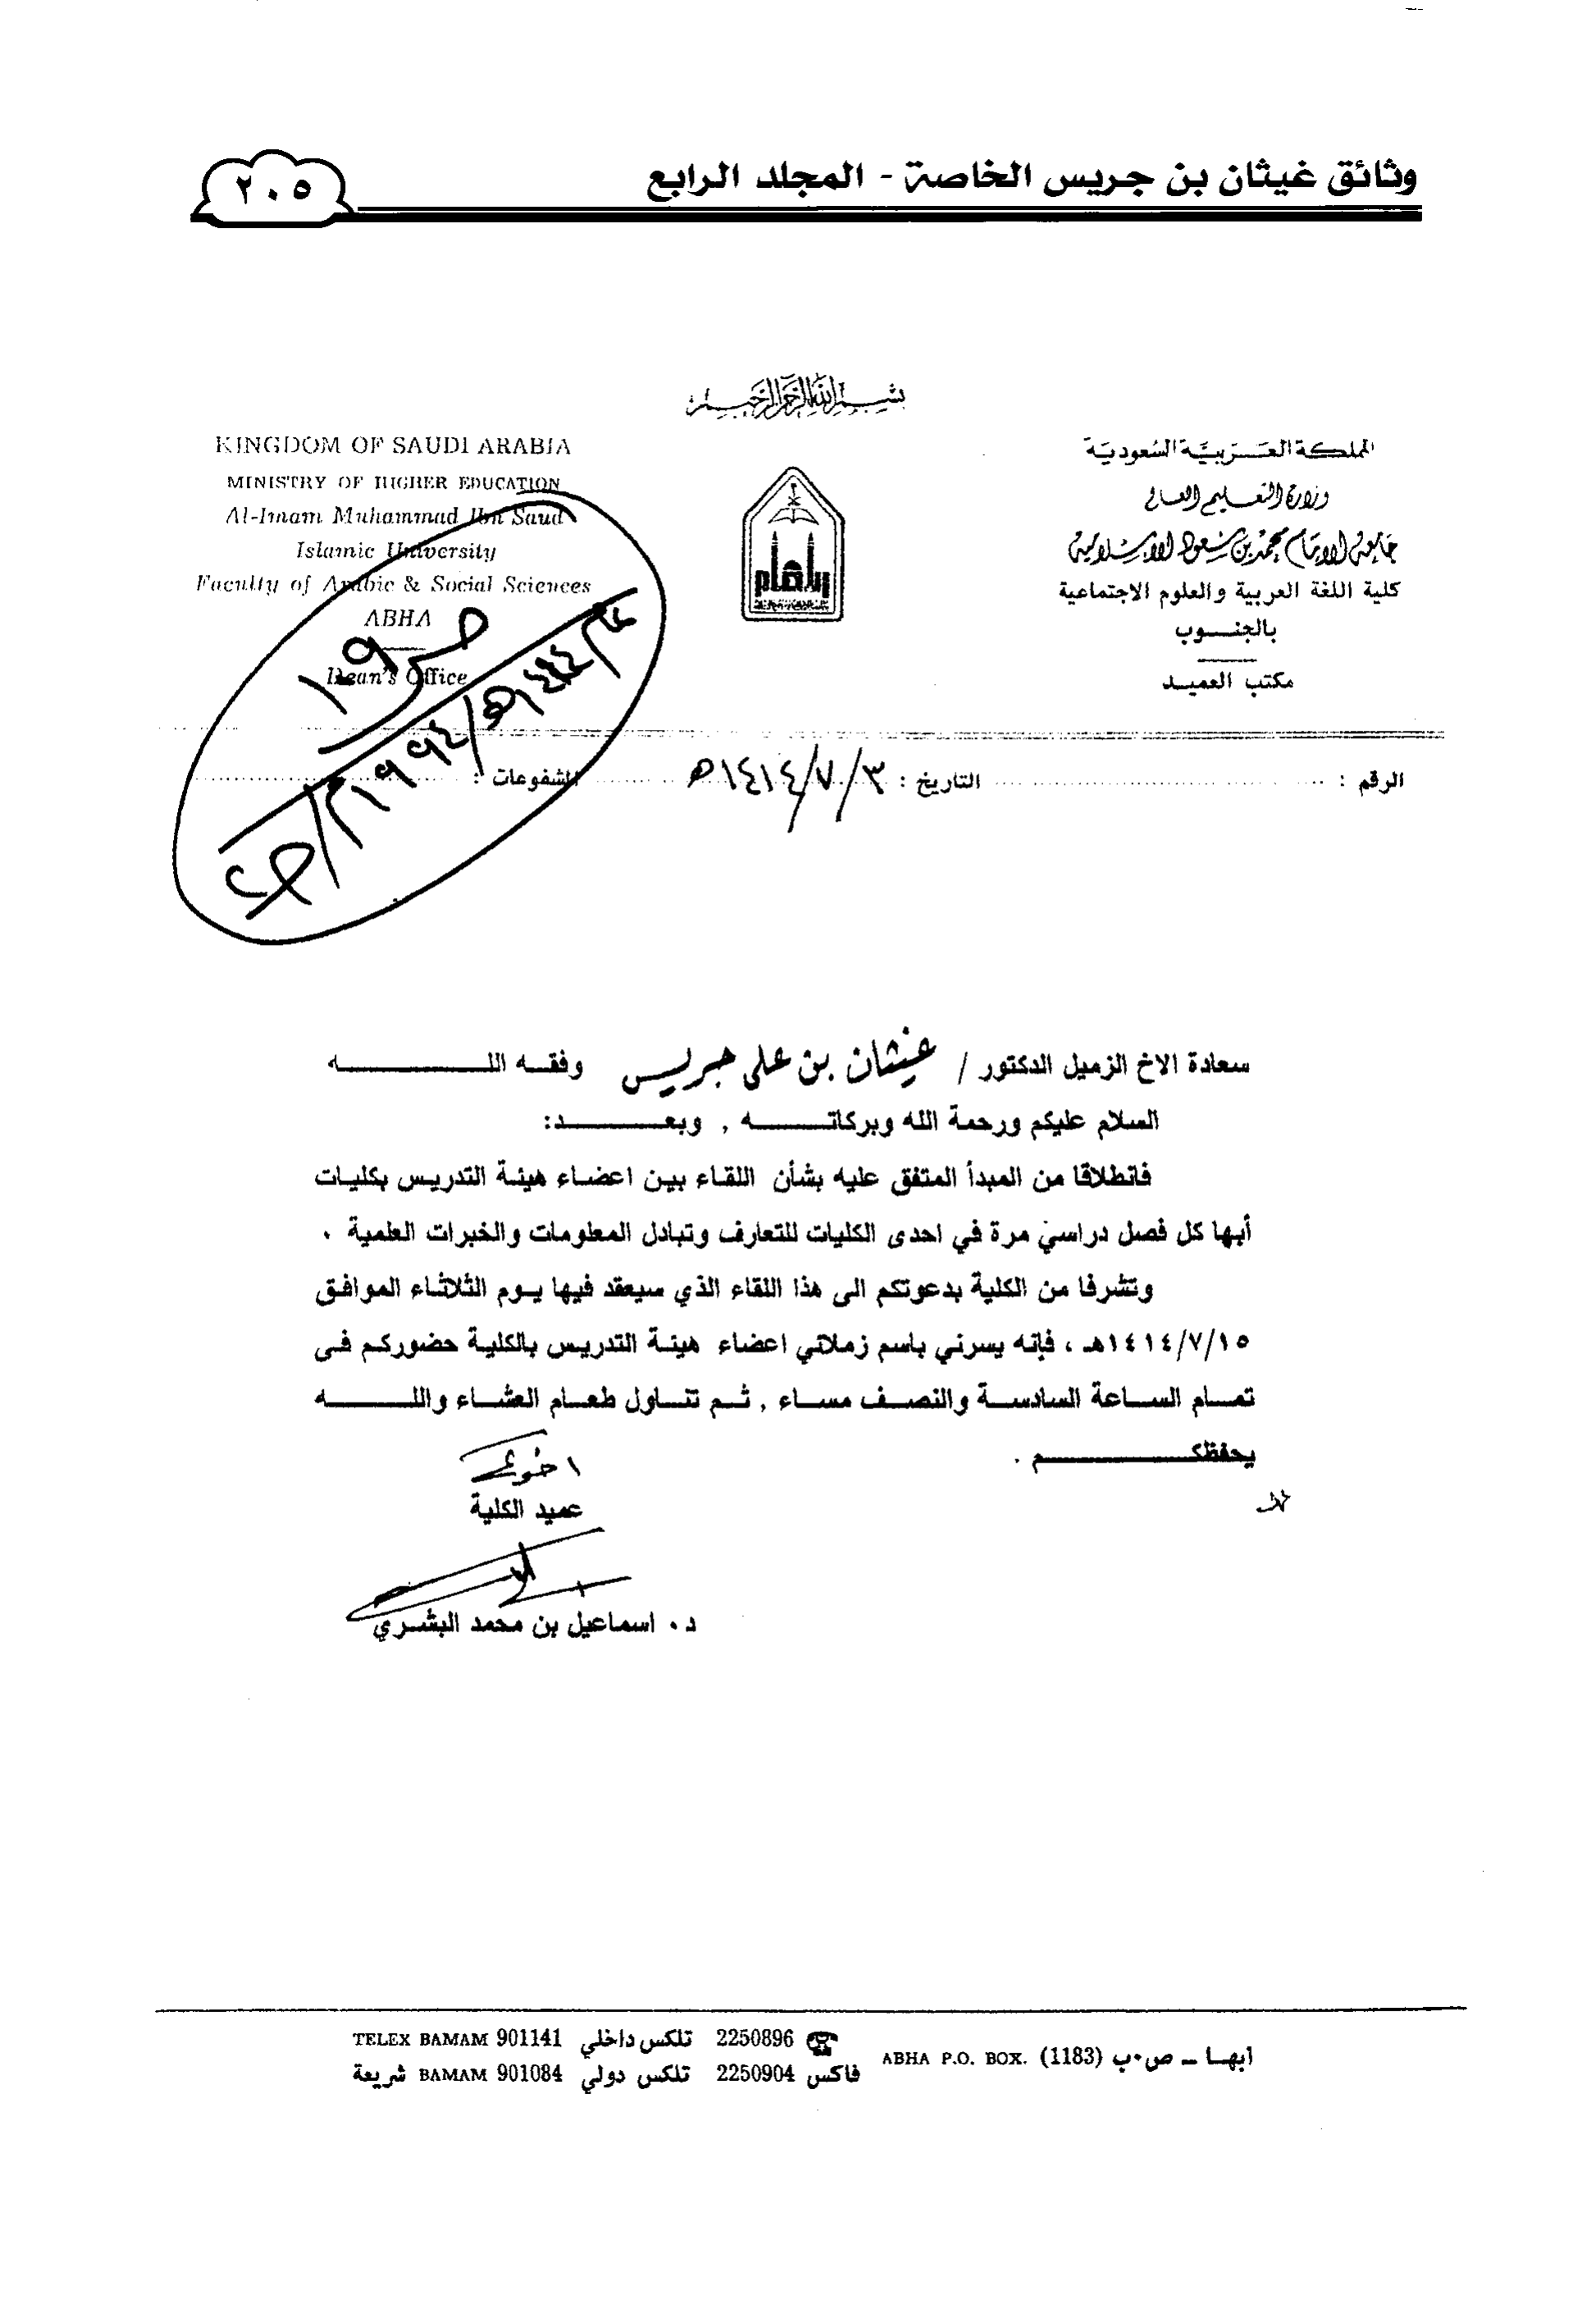 وثائق غيثان بن جريس الخاصة - المجلد الرابع
٢٠٥
بسم الله الرحمن الرحيم
المملكة العربية السعودية
وزارة التعليم العالي
جامعة الإمام محمد بن سعود الإسلامية
كلية اللغة العربية والعلوم الاجتماعية
بالجنوب
مكتب العميد
KINGDOM OF SAUDI ARABIA
MINISTRY OF HIGHER EDUCATION
Al-Imam Muhammad Ibn Saud
Islamic University
Faculty of Arabic & Social Sciences
ABHA
Dean's Office
الرقم : التاريخ : ٣/٧/١٤١٤هـ المشفوعات :
سعادة الاخ الزميل الدكتور / غيثان بن على جريس وفقه اللـه
السلام عليكم ورحمة الله وبركاتـه , وبعـد:
فانطلاقا من المبدأ المتفق عليه بشأن اللقاء بين اعضاء هيئة التدريس بكليات
أبها كل فصل دراسي مرة في احدى الكليات للتعارف وتبادل المعلومات والخبرات العلمية .
وتشرفا من الكلية بدعوتكم الى هذا اللقاء الذي سيعقد فيها يـوم الثلاثـاء الموافـق
١٤١٤/٧/١٥هـ ، فإنه يسرني باسم زملائي اعضاء هيئـة التدريـس بالكليـة حضوركـم فـى
تمـام الساعة السادسـة والنصـف مسـاء , ثـم تنـاول طعـام العشـاء واللـه
يحفظكـم .
عميد الكلية
د٠ اسماعيل بن محمد البشـري
أبهـا ـ ص٠ب (1183) ABHA P.O. BOX.
2250896 تلكس داخلي TELEX BAMAM 901141
فاكس 2250904 تلكس دولي BAMAM 901084 شريعة